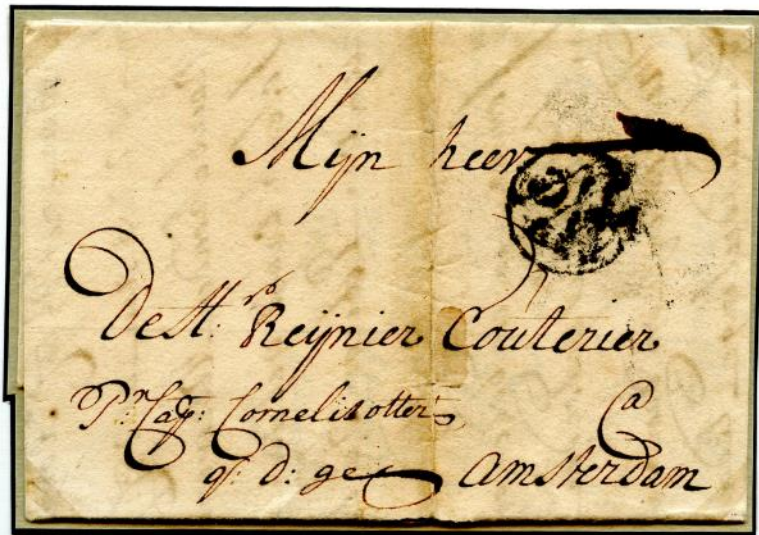 Mijn heer
De Hr: Reijnier Couterier
Pr: Cap: Cornelis otters a
q: d: g: Amsterdam